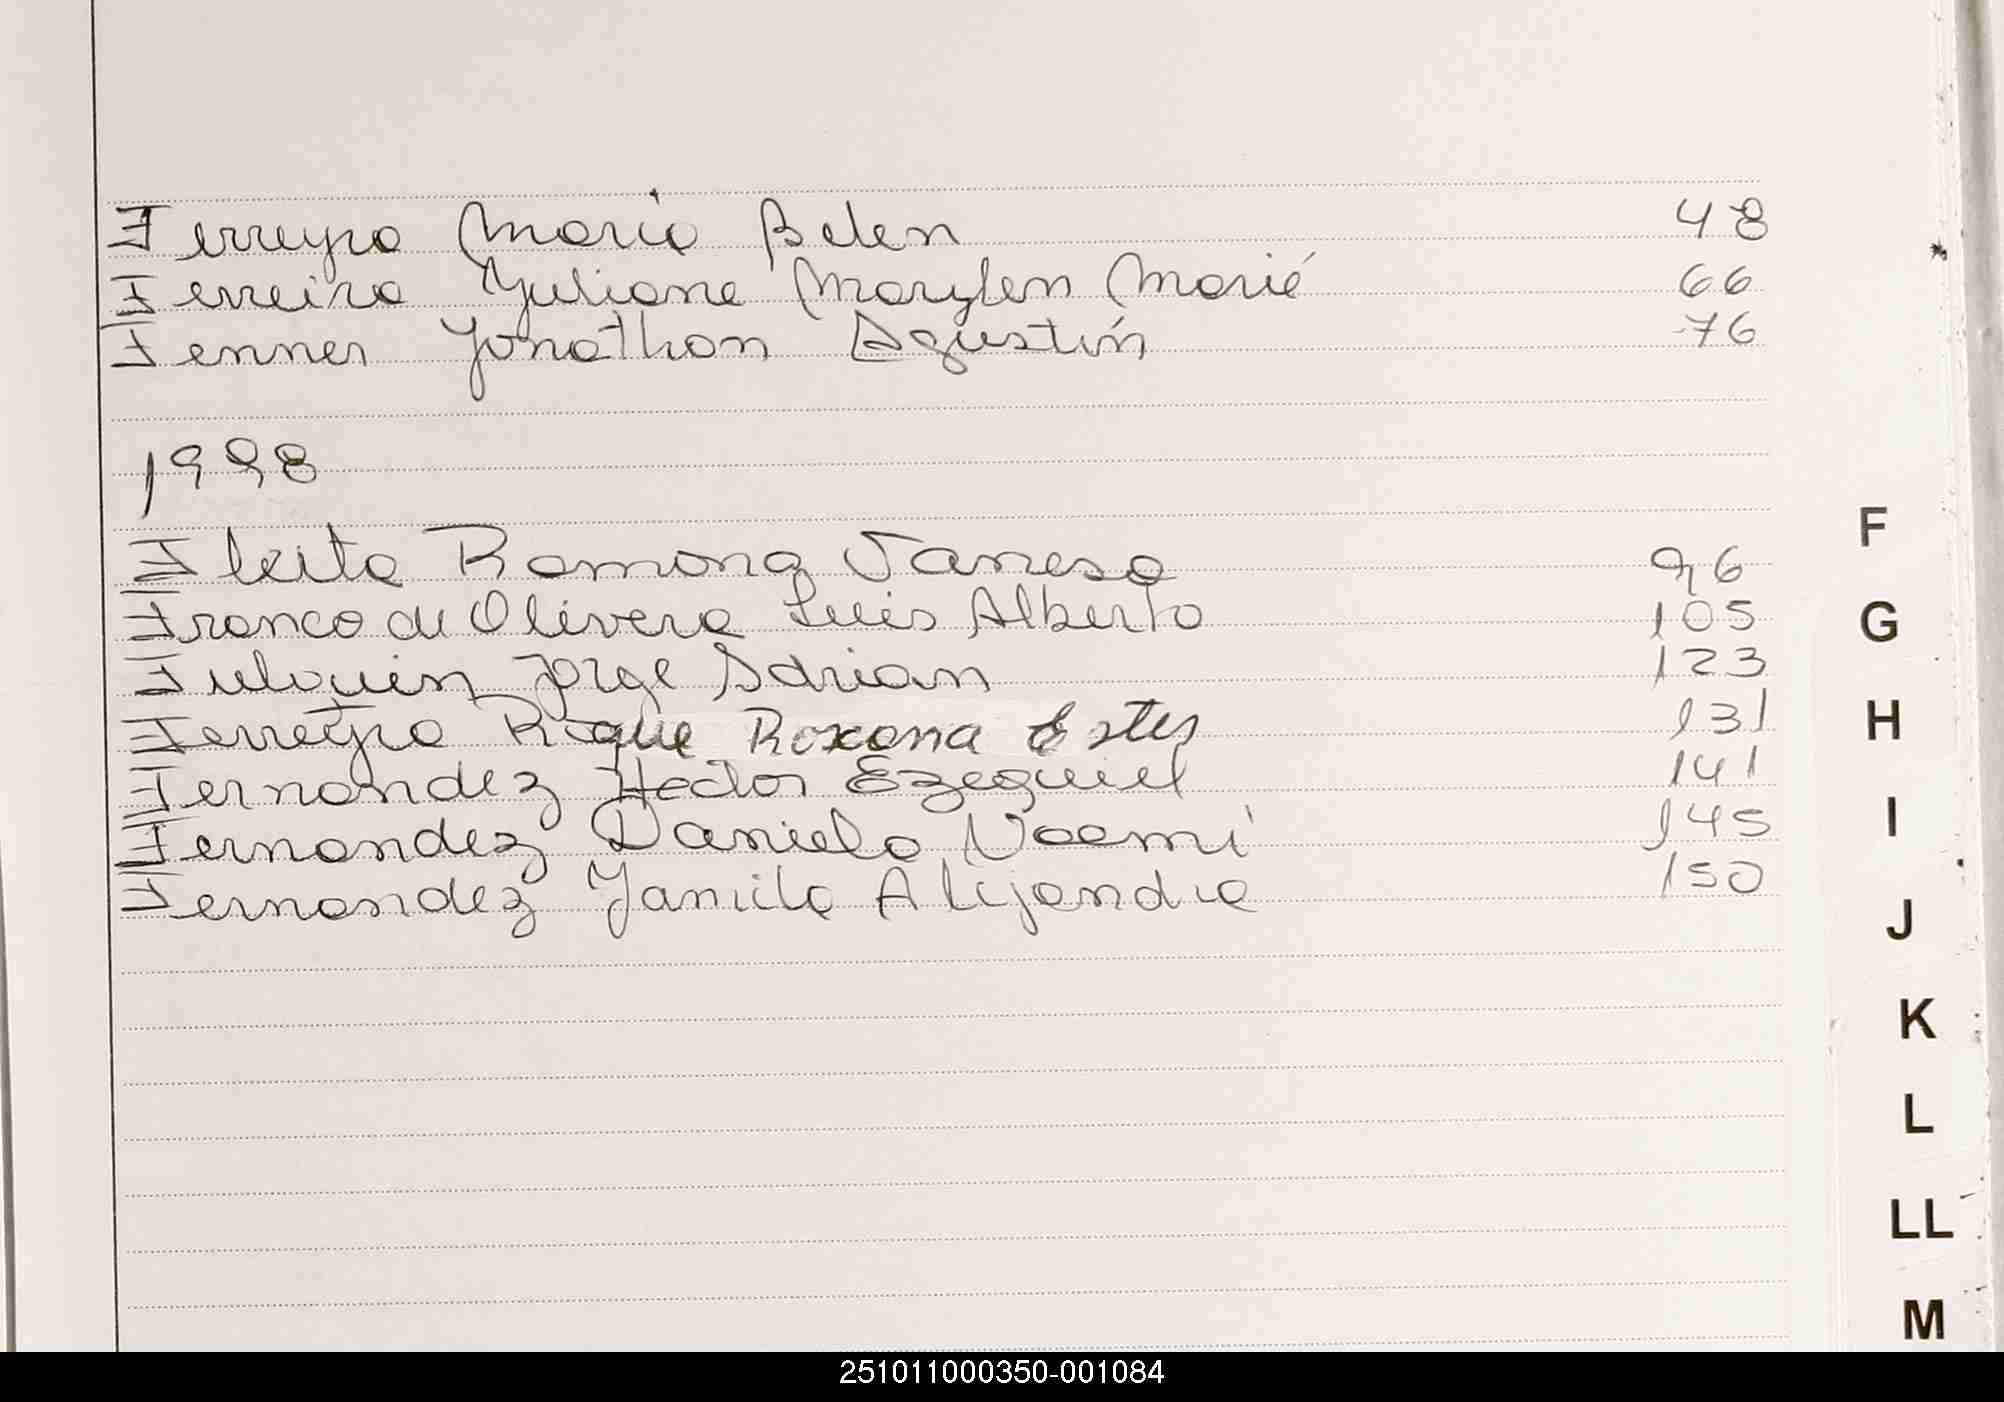 Ferreyra Maria Belen 48
Ferreira Yuliana Marylen Marié 66
Fenner Jonathan Agustín 76
1998
Fleita Ramona Vanesa 96
Franco de Olivera Luis Alberto 105
Jorge Adrian 123
Ferreyra Roque Roxana Ester 131
Fernandez Hector Ezequiel 141
Fernandez Daniela Noemí 145
Fernandez Yamila Alejandra 150
F
G
H
I
J
K
L
LL
M
251011000350-001084